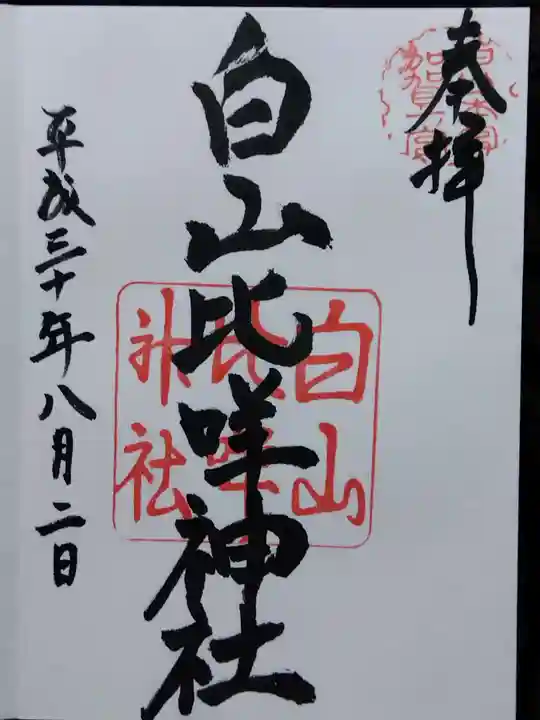 奉拝
白山比咩神社
白山
比咩
神社
平成三十年八月二日